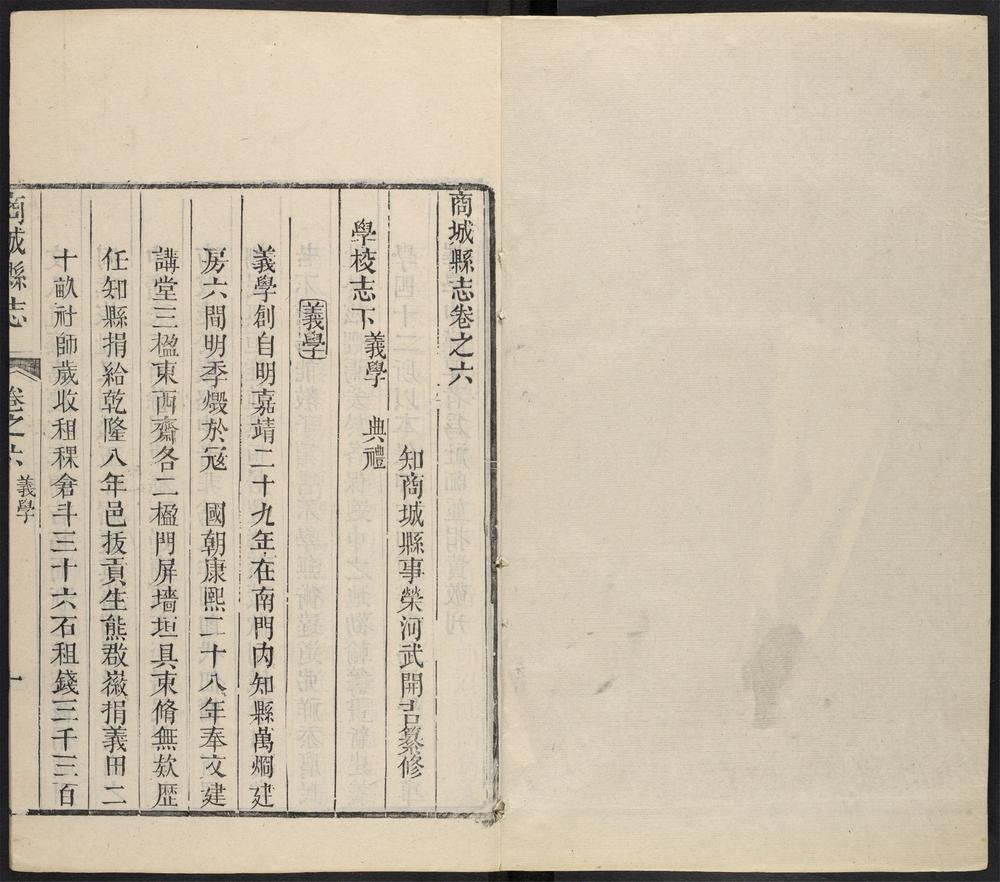 商城縣志卷之六
知商城縣事榮河武開吉纂修
學校志下 義學 典禮
義學
義學創自明嘉靖二十九年在南門內知縣萬烱建
房六間明季燬於冦 國朝康熙二十八年奉文建
講堂三楹東西齋各二楹門屏墻垣具束脩無欵歴
任知縣捐給乾隆八年邑拔貢生熊羣嶽捐義田二
十畝社師歲收租稞倉斗三十六石租錢三千三百
商城縣志 卷之六 義學 一